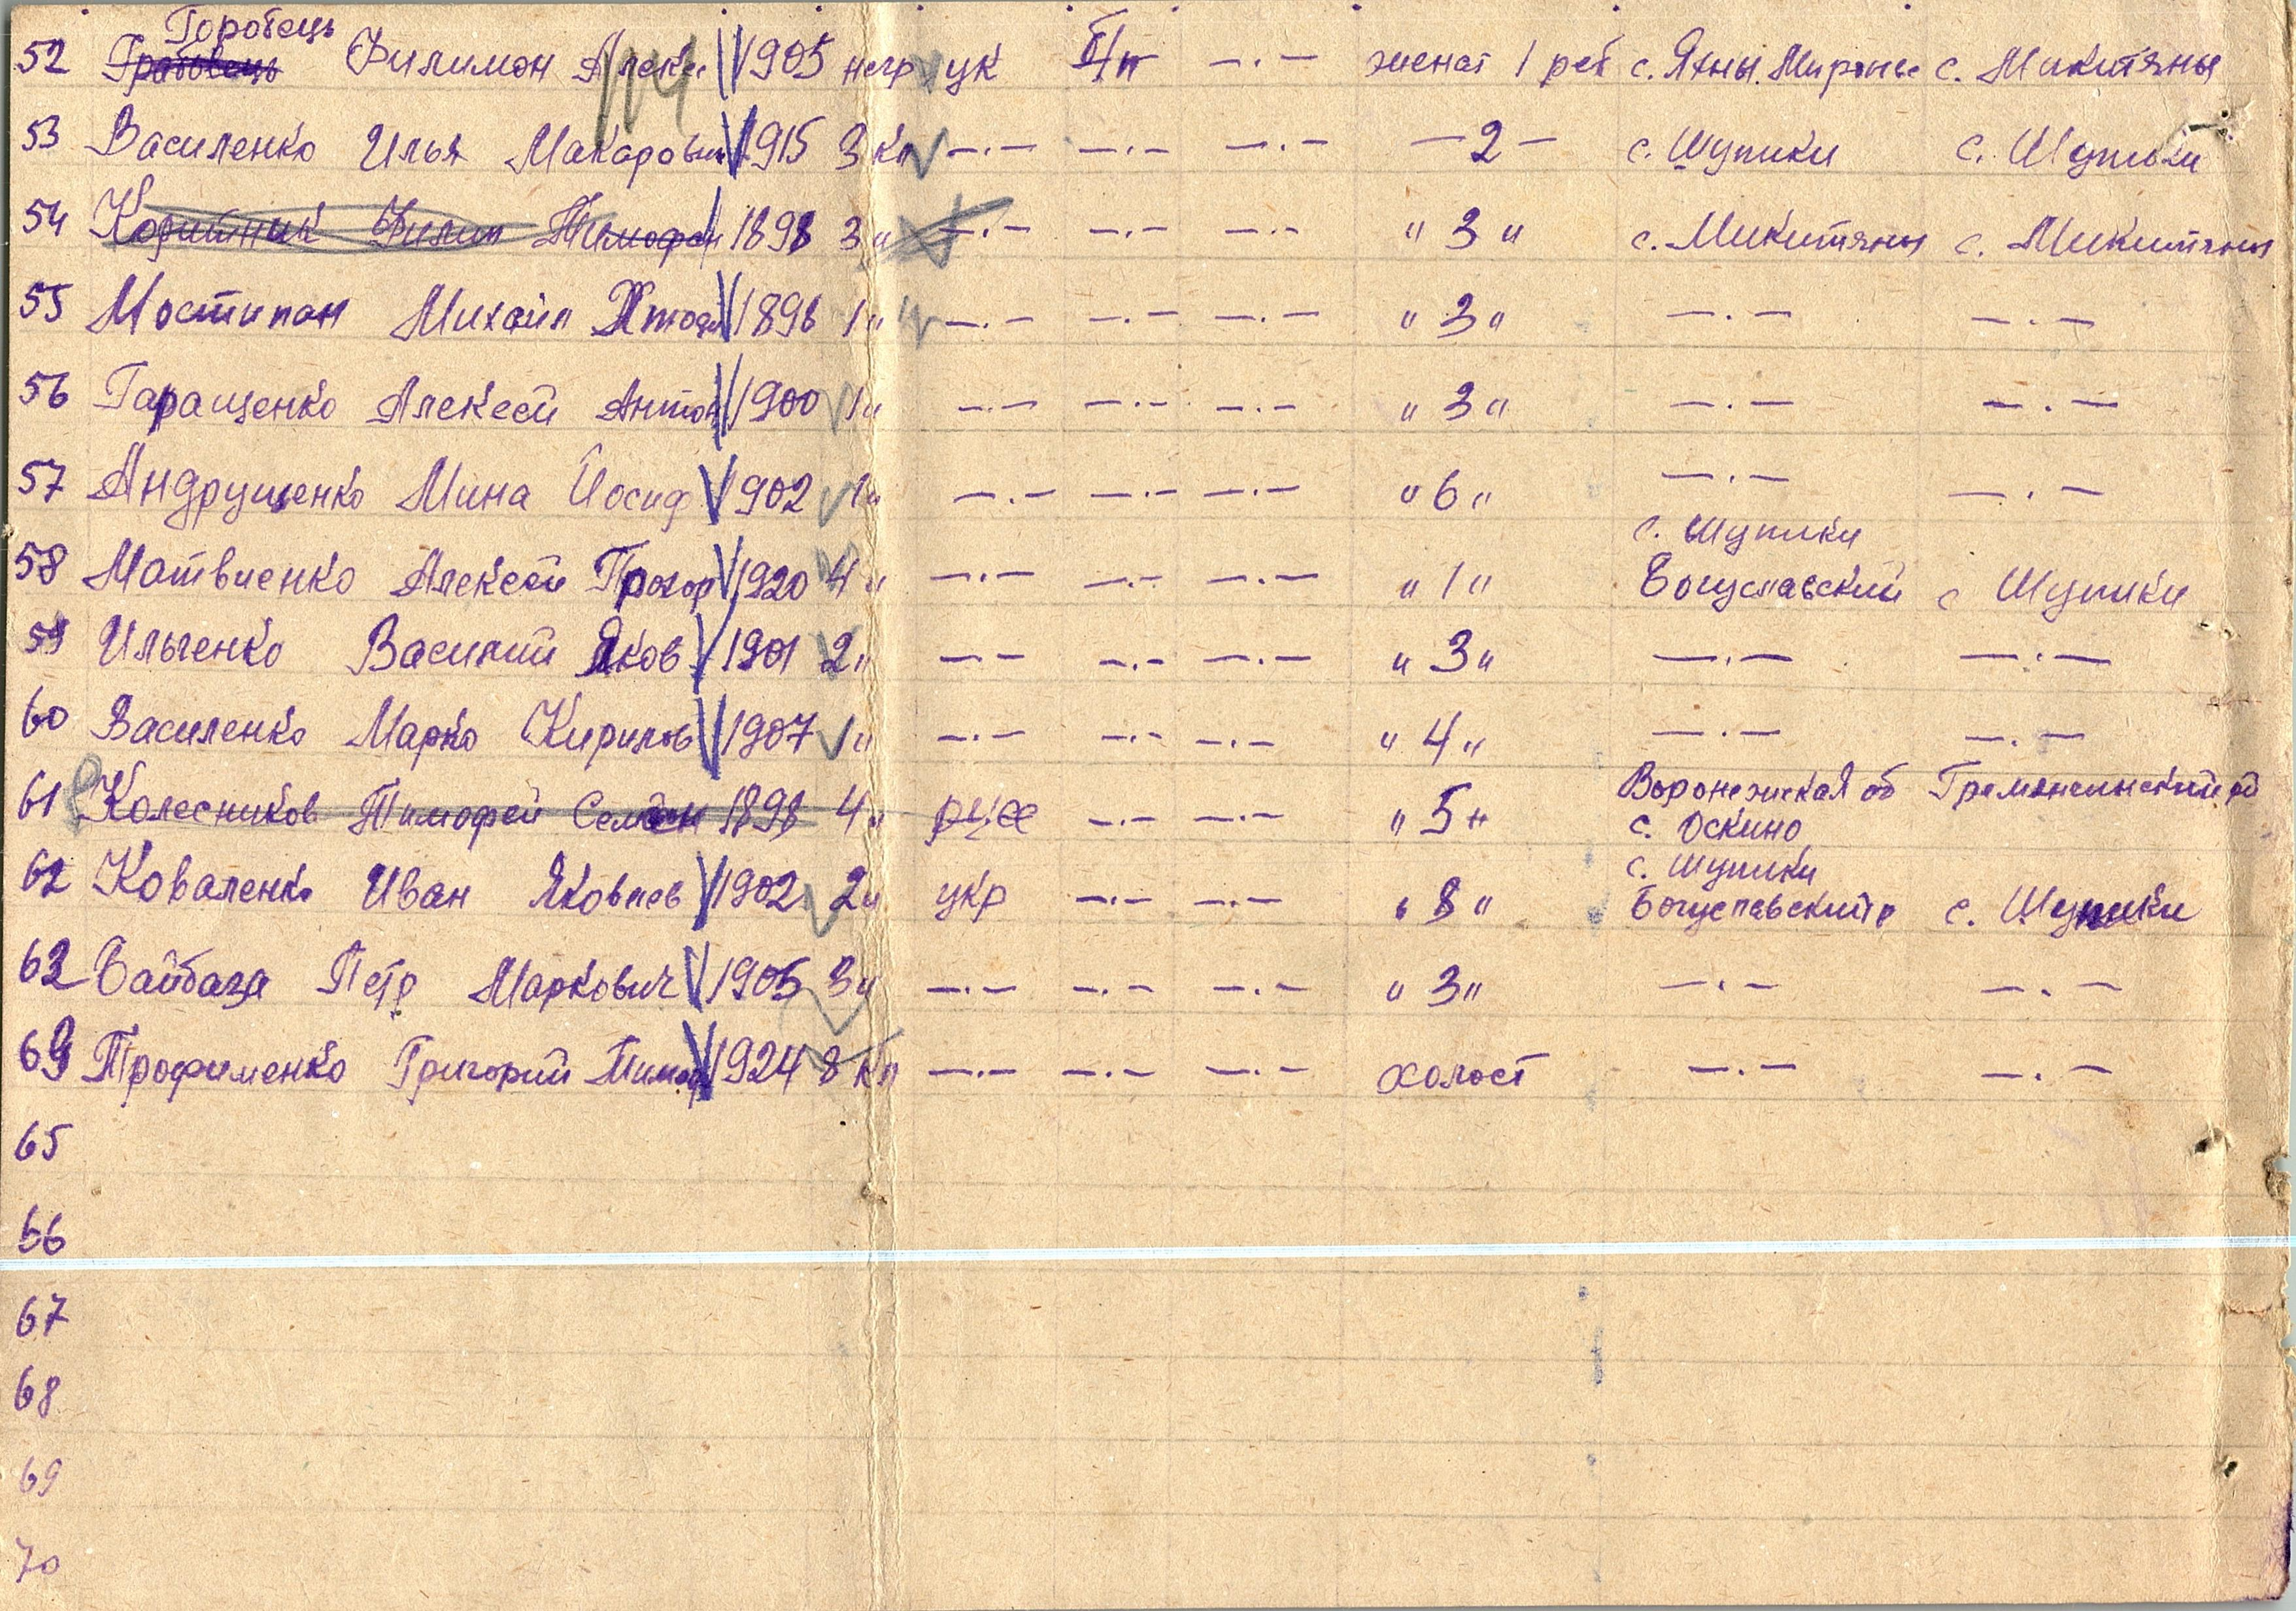 Горобець
52 Грабовець Филимон Алексе 1905 негр ук б/п —.— женат 1 реб с. Яхны. Миронов с. Микитяны
53 Василенко Илья Макарович 1915 3 кл —.— —.— —.— — 2 — с. Шупики с. Шупики
54 Корийник Филип Тимофеи 1898 3 " —.— —.— —.— " 3 " с. Микитяны с. Микитяны
55 Мостипан Михаил 1898 1 " —.— —.— —.— " 3 " —.— —.—
56 Гаращенко Алексей Антон 1900 1 " —.— —.— —.— " 3 " —.— —.—
57 Андрущенко Мина Йосиф 1902 1 " —.— —.— —.— " 6 " —.— —.—
с. Шупики
58 Матвиенко Алексей Прохор 1920 4 " —.— —.— —.— " 1 " Богуславский с Шупики
59 Ильченко Василий Яков 1901 2 " —.— —.— —.— " 3 " —.— —.—
60 Василенко Марко Кирилов 1907 1 " —.— —.— —.— " 4 " —.— —.—
Воронежская об
61 Колесников Тимофей Семен 1898 4 " —.— —.— " 5 " с. Оскино
с. Шупики
62 Коваленко Иван Яковлев 1902 2 " укр —.— —.— " 8 " Богуславский р с. Шупики
63 Байбаза Петр Маркович 1905 3 " —.— —.— —.— " 3 " —.— —.—
64 Трофименко Григорий Тимоф 1924 8 кл —.— —.— —.— холост —.— —.—
65
66
67
68
69
70